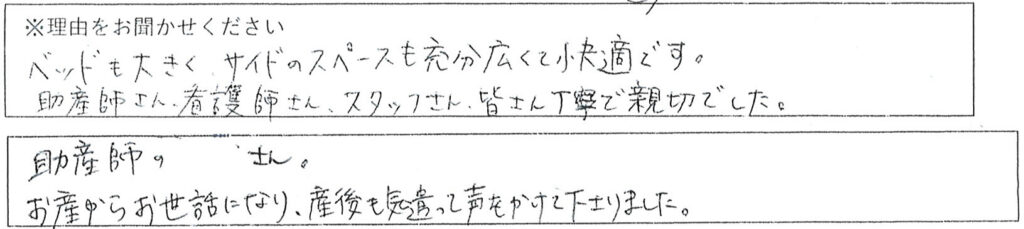 ※理由をお聞かせください
ベッドも大きく、サイドのスペースも充分広くて快適です。
助産師さん、看護師さん、スタッフさん、皆さん丁寧で親切でした。
助産師の さん。
お産からお世話になり、産後も気遣って声をかけて下さりました。